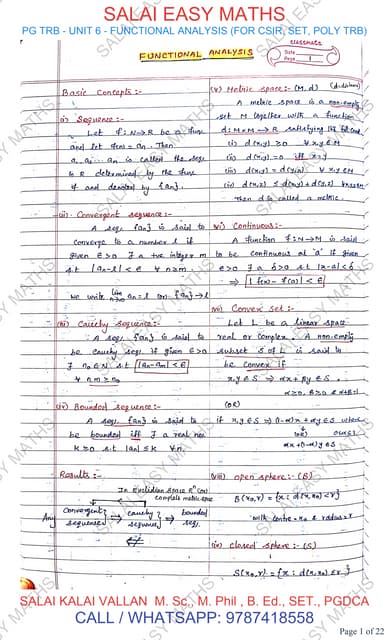 SALAI EASY MATHS
PG TRB - UNIT 6 - FUNCTIONAL ANALYSIS (FOR CSIR, SET, POLY TRB)
classmate
Date
Page 1
FUNCTIONAL ANALYSIS
Basic Concepts:-
i) Sequence:-
Let f: N→R be a func
and let f(n) = an. Then
a1 a2... an is called the seq.
in R determined by the func
f and denoted by {an}.
ii) Convergent sequence:-
A seq. {an} is said to
converge to a number l if
given ε>0 ∃ a +ve integer m
s.t |an-l| < ε ∀ n≥m
we write lim n→∞ an = l (or) {an}→l
iii) Cauchy sequence:-
A seq. {an} is said to
be cauchy seq. if given ε>0
∃ n0∈N s.t |an-am|<ε
∀ n,m ≥ n0
iv) Bounded sequence:-
A seq. {an} is said to
be bounded iff ∃ a real no.
k>0 s.t |an| ≤ k ∀n.
Results:-
In Euclidian space R^n (or)
complete metric space
Any Convergent ⇒ cauchy ⇒ bounded
sequence sequence seq.
(v) Metric space:- (M,d)
A metric space is a non-empty
set M together with a function
d: M×M→R satisfying
(i) d(x,y) ≥ 0 ∀ x,y∈M
(ii) d(x,y)=0 iff x=y
(iii) d(x,y)=d(y,x) ∀ x,y∈M
(iv) d(x,z) ≤ d(x,y)+d(y,z)
Then d is called a metric.
vi) Continuous:-
A function f: N→M is said
to be continuous at 'a' if given
ε>0 ∃ a δ>0 s.t |x-a|<δ
⇒ |f(x)-f(a)| < ε
vii) Convex set:-
Let L be a linear space
real or complex. A non-empty
subset S of L is said to
be convex if
x,y∈S ⇒ αx+βy∈S,
α≥0, β≥0 & α+β=1
(OR)
if x,y∈S ⇒ (1-α)x+αy∈S where
(or) 0≤α≤1
αx+(1-α)y∈S
(viii) open sphere:- (B)
B(x0,r) = {x: d(x,x0)<r}
with centre = x0 & radius = r
(ix) closed sphere:- (S)
S(x0,r) = {x: d(x,x0)≤r}
SALAI KALAI VALLAN M. Sc., M. Phil , B. Ed., SET., PGDCA
CALL / WHATSAPP: 9787418558
Page 1 of 22